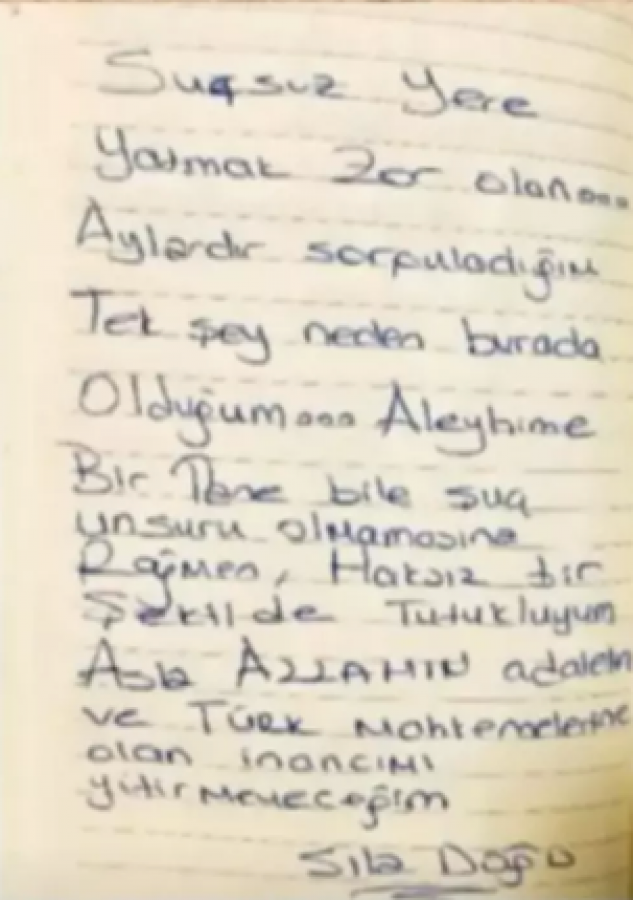 Suçsuz Yere
Yatmak Zor olan...
Aylardır sorguladığım
Tek şey neden burada
Olduğum... Aleyhime
Bir Tane bile suç
unsuru olmamasına
Rağmen, Haksız bir
Şekilde Tutukluyum
Asla ALLAHIN adaletin
ve Türk Mahkemelerine
olan inancımı
yitirmeyeceğim
Sıla Doğu